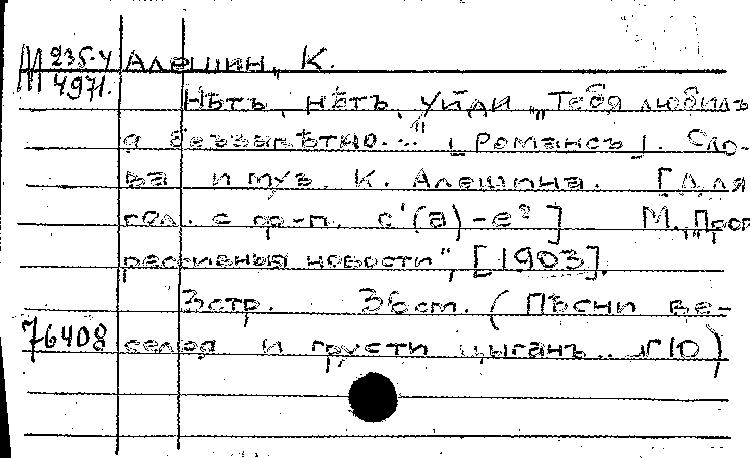 М 235.4 Алешин, К.
4971.
Нѣтъ, нѣтъ, уйди „Тебя любилъ
я беззавѣтно..." [Романсъ]. Сло-
ва и муз. К. Алешина. [Для
гол. с ф-п. c'(a)-e²] М., „Прог
рессивныя новости", [1903].
3 стр. 36 ст. (Пѣсни ве-
76408 селья и грусти цыганъ.. №10)